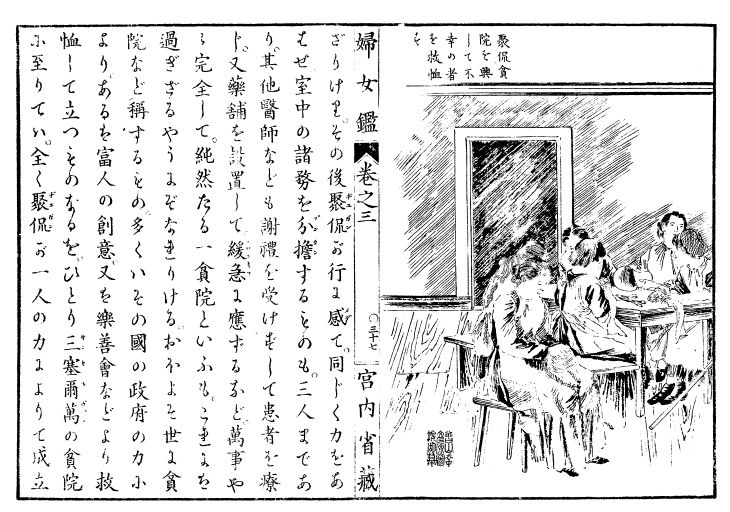 聚侃貧
院を興
して不
幸の者
を救恤
す
婦女鑑
卷之三
〇三十七
宮内省藏
ざりけり。その後聚侃が行に感て。同じく力をあ
はせ室中の諸務を分擔するものも。三人まであ
り。其他醫師なども謝禮を受けずして患者を療
じ。又藥舗を設置して緩急に應ずるなど萬事や
ゝ完全して。純然たる一貧院といふも。これにを
過ぎざるやうにぞなれりける。おほよそ世に貧
院など稱するもの。多くいその國の政府の力に
より。あるは富人の創意。又は樂善會などより救
恤して立つものなるを。ひとり三塞爾萬の貧院
に至りては。全く聚侃が一人の力によりて成立